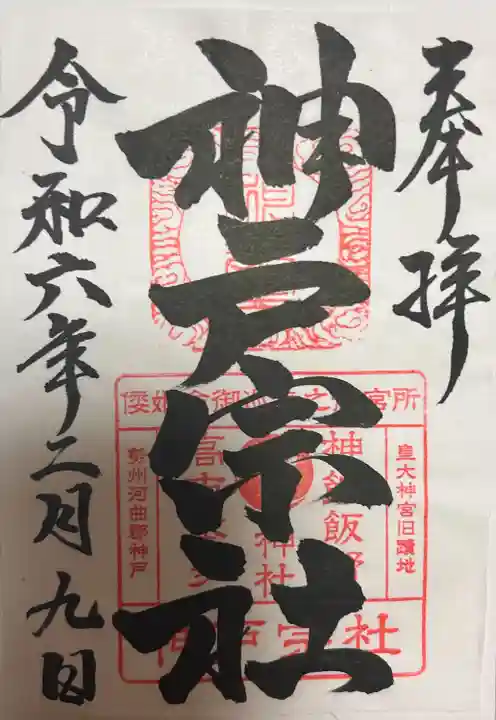 奉拝
神戸宗社
令和六年二月九日
皇大神宮旧蹟地
勢州河曲郡神戸
神戸宗社